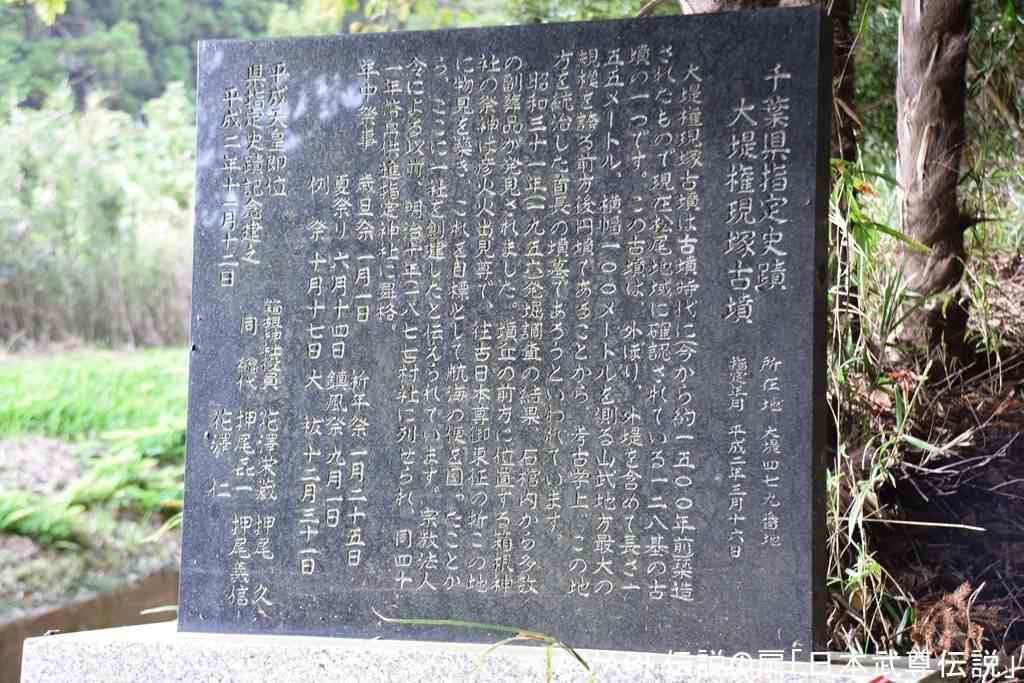 千葉県指定史蹟
大堤権現塚古墳
所在地 大堤四七九番地
指定年月 平成二年三月十六日
大堤権現塚古墳は古墳時代に今から約一五〇〇年前築造
されたもので現在松尾地域に確認されている一二八基の古
墳の一つです。この古墳は、外ぼり、外堤を含めて長さ一
五五メートル、横幅一〇〇メートルを測る山武地方最大の
規模を誇る前方後円墳であることから、考古学上、この地
方を統治した首長の墳墓であろうといわれています。
昭和三十一年(一九五六)発堀調査の結果、石棺内から多数
の副葬品が発見されました。墳丘の前方に位置する箱根神
社の祭神は彦火火出見尊で、往古日本尊御東征の折この地
に物見を築き、これを目標として航海の便を図ったことか
ら、ここに一社を創建したと伝えられています。宗教法人
令による以前、明治十年(一八七七)村社に列せられ、同四十
一年幣帛供進指定神社に昇格。
年中祭事 歳旦祭一月一日 祈年祭一月二十五日
夏祭り 六月十四日 鎮風祭九月一日
例 祭十月十七日 大 祓十二月三十一日
平成天皇即位
県指定史蹟記念建之
平成二年十二月十二日
箱根神社役員 花澤末蔵 押尾 久
同 総代 押尾㐂一 押尾義信
花澤 仁
伝説の扉「日本武尊伝説」